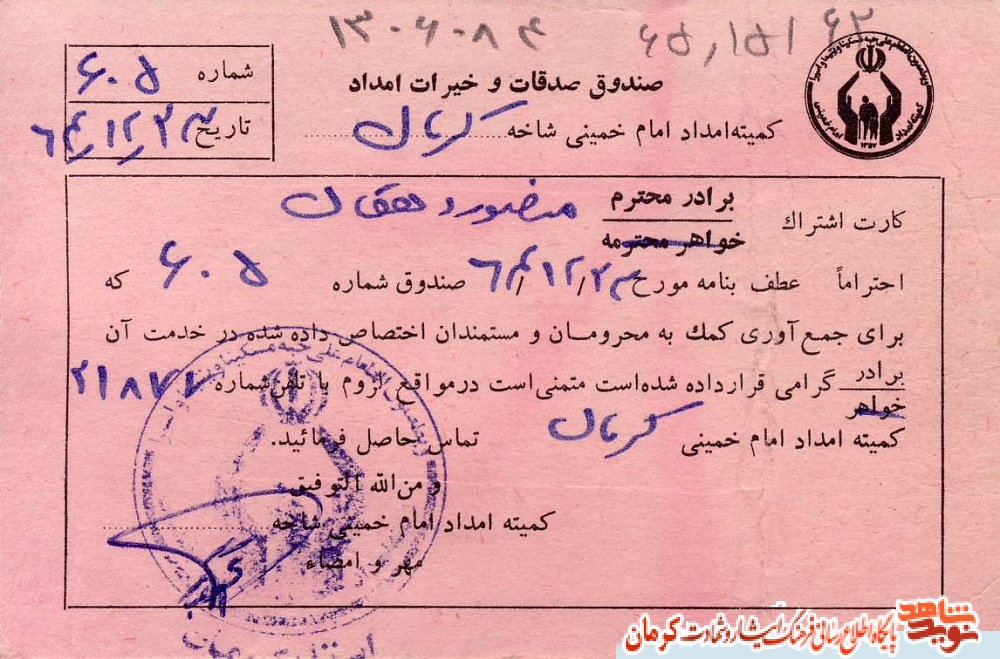 ۱۳۰۶۰۸۴
۶۵,۱۵۱ ۶۲
صندوق صدقات و خیرات امداد
کمیته امداد امام خمینی شاخه کرمان
شماره ۶۰۵
تاریخ
کمیته امداد امام خمینی
۱۳۵۷
کارت اشتراك برادر محترم منصور دهقان
خواهر محترمه
احتراماً عطف بنامه مورخ صندوق شماره ۶۰۵ که
برای جمع آوری کمك به محرومان و مستمندان اختصاص داده شده در خدمت آن
برادر گرامی قرارداده شده‌است متمنی‌است درمواقع لزوم با تلفن‌شماره ۲۱۸۷۷
خواهر
کمیته امداد امام خمینی کرمان تماس حاصل فرمائید.
و من‌الله التوفیق
کمیته امداد امام خمینی شاخه
مهر و امضاء
نوید شاهد
پایگاه اطلاع رسانی فرهنگ ایثار و شهادت کرمان